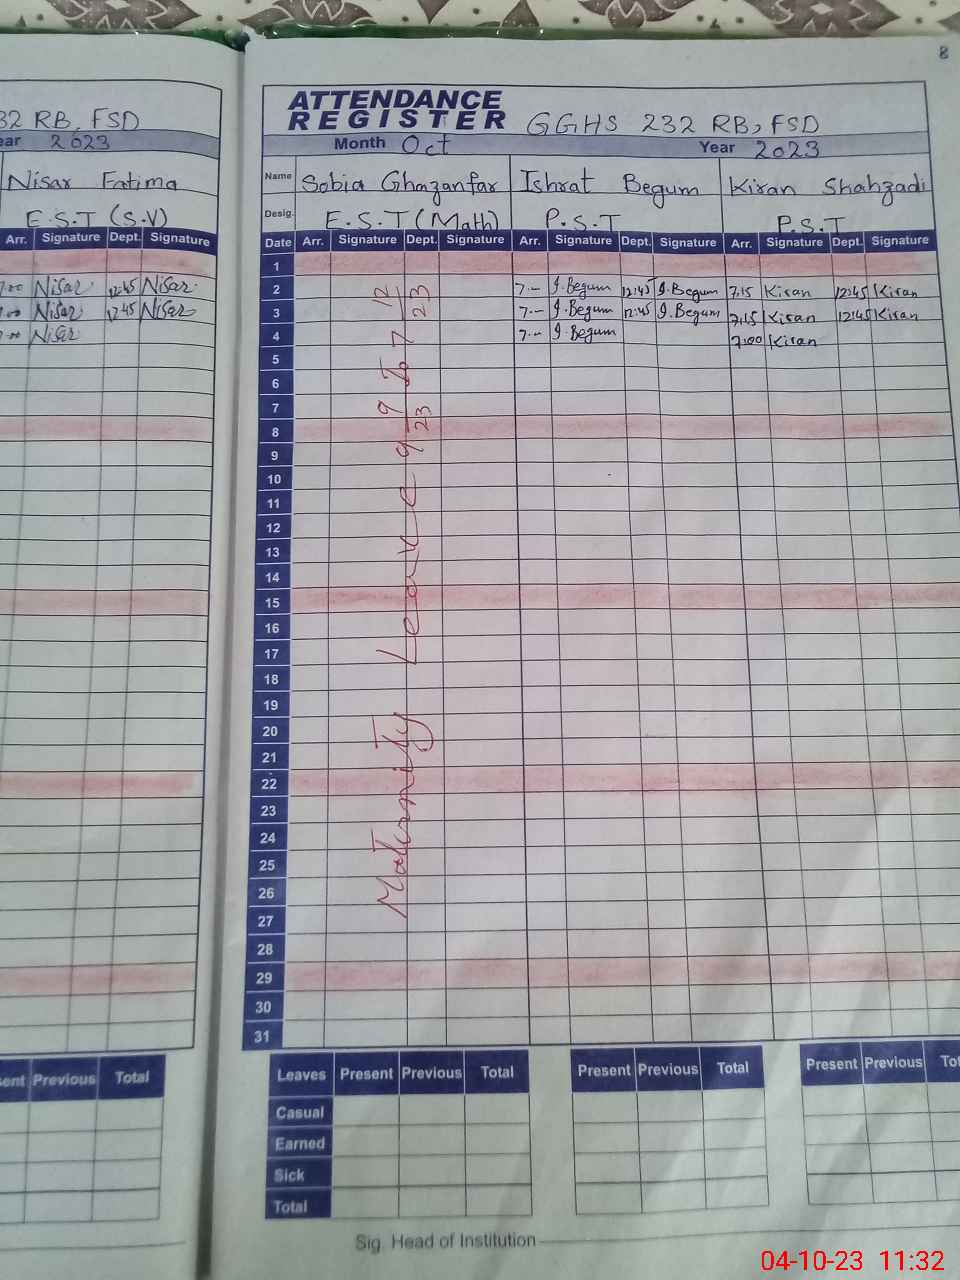 8
32 RB, FSD
ear 2023
Nisar Fatima
E.S.T (S.V)
Arr. Signature Dept. Signature
7:00 Nisar 12:45 Nisar
Nisar 12:45 Nisar
Nisar
sent Previous Total
ATTENDANCE
REGISTER GGHS 232 RB, FSD
Month Oct Year 2023
Name Sobia Ghazanfar Ishrat Begum Kiran Shahzadi
Desig. E.S.T (Math) P.S.T P.S.T
Date Arr. Signature Dept. Signature Arr. Signature Dept. Signature Arr. Signature Dept. Signature
1
2 7.-- I.Begum 12:45 I.Begum 7:15 Kiran 12:45 Kiran
3 7.-- I.Begum 12:45 I.Begum 7:15 Kiran 12:45 Kiran
4 7.-- I.Begum 7:00 Kiran
5
6
7
8
9
10
11
12
13
14
15
16
17
18
19
20
21
22
23
24
25
26
27
28
29
30
31
Maternity Leave 9 9/23 To 7 12/23
Leaves Present Previous Total Present Previous Total Present Previous Tot
Casual
Earned
Sick
Total
Sig. Head of Institution
04-10-23 11:32